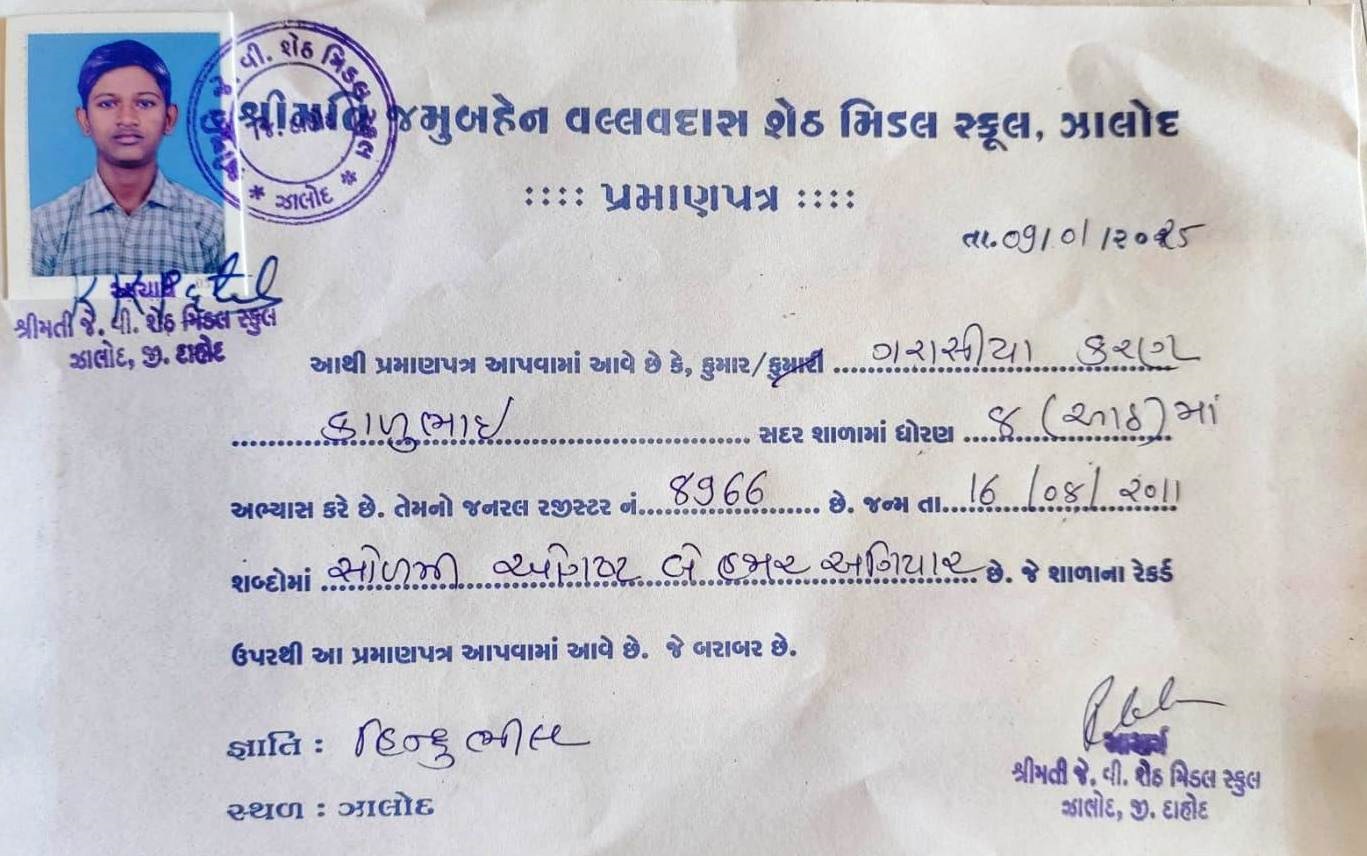 જે. વી. શેઠ મિડલ સ્કૂલ
* ઝાલોદ *
શ્રીમતિ જમુબહેન વલ્લવદાસ શેઠ મિડલ સ્કૂલ, ઝાલોદ
:::: પ્રમાણપત્ર ::::
તા.09/01/૨૦૨૫
આચાર્ય
શ્રીમતી જે. વી. શેઠ મિડલ સ્કુલ
ઝાલોદ, જી. દાહોદ
આથી પ્રમાણપત્ર આપવામાં આવે છે કે, કુમાર/કુમારી ગરાસીયા કરણ
કાળુભાઇ સદર શાળામાં ધોરણ ૮ (આઠ) માં
અભ્યાસ કરે છે. તેમનો જનરલ રજીસ્ટર નં. ૪966 છે. જન્મ તા. 16/0૮/૨૦11
શબ્દોમાં સોળમી ઓગષ્ટ બે હજાર અગિયાર છે. જે શાળાના રેકર્ડ
ઉપરથી આ પ્રમાણપત્ર આપવામાં આવે છે. જે બરાબર છે.
જ્ઞાતિ : હિન્દુ ભીલ
સ્થળ : ઝાલોદ
આચાર્ય
શ્રીમતી જે. વી. શેઠ મિડલ સ્કુલ
ઝાલોદ, જી. દાહોદ